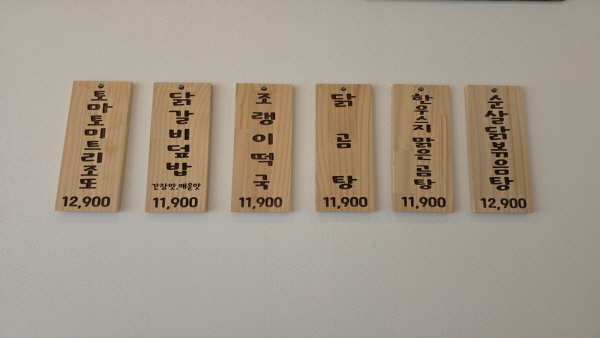 토마토미트리조또
12,900
닭갈비덮밥
간장맛,매운맛
11,900
조랭이떡국
11,900
닭곰탕
11,900
한우스지 맑은곰탕
11,900
순살닭볶음탕
12,900